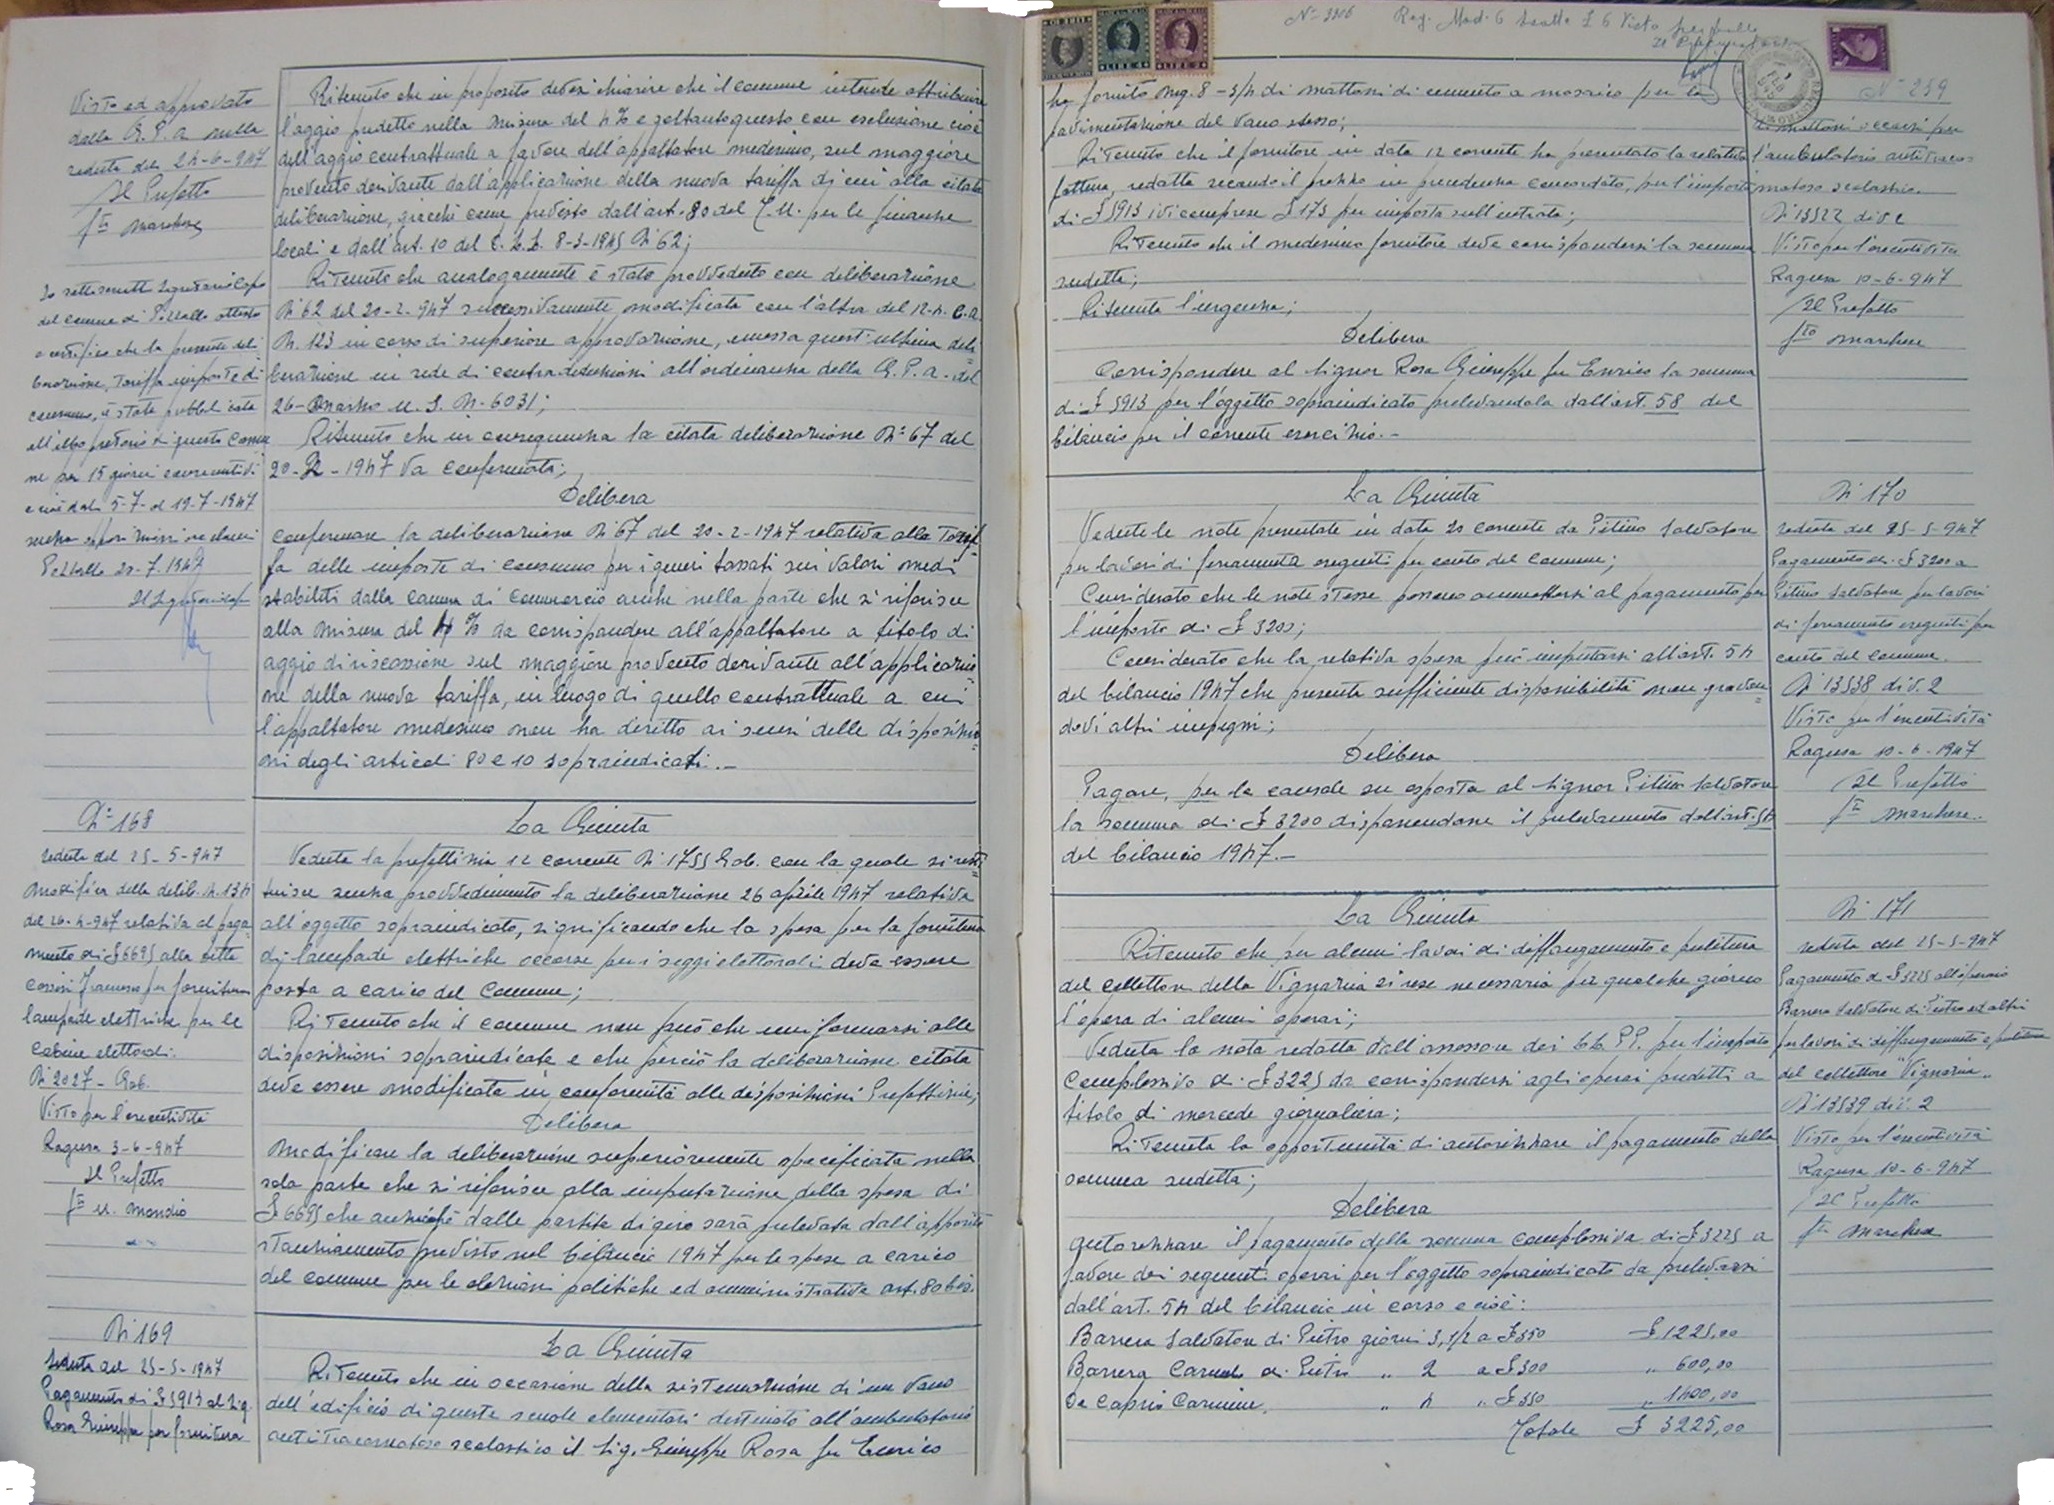 Visto ed approvato
dalla G.P.A nella
seduta del 24-6-947
Il Prefetto
fto Marchese
Io sottoscritto Segretario Capo
del Comune di Pozzallo attesto
e certifico che la presente deli
berazione, tariffa imposte di
consumo, è stata pubblicata
all'albo pretorio di questo Comu
ne per 15 giorni consecutivi
e cioè dal 5-7- al 19-7-1947
senza opposizioni o reclami
Pozzallo 20-7-1947
Il Segretario Capo
Ritenuto che in proposito devesi chiarire che il comune intende attribuire
l'aggio predetto nella misura del 4% e soltanto questo con esclusione cioè
dell'aggio contrattuale a favore dell'appaltatore medesimo, sul maggiore
provento derivante dall'applicazione della nuova tariffa di cui alla citata
deliberazione, giacchè come previsto dall'art. 80 del T.U. per le finanze
locali e dall'art. 10 del D.L.L. 8-3-1945 N° 62;
Ritenuto che analogamente è stato provveduto con deliberazione
N° 62 del 20-2-947 successivamente modificata con l'altra del 12-4-c.a.
N. 123 in corso di superiore approvazione, emessa quest'ultima deli
berazione in sede di controdeduzioni all'ordinanza della G.P.A. del
26-Marzo u.s. N. 6031;
Ritenuto che in conseguenza la citata deliberazione N° 67 del
20-2-1947 va confermata;
Delibera
confermare la deliberazione N° 67 del 20-2-1947 relativa alla Tarif
fa delle imposte di consumo per i generi tassati sui valori medi
stabiliti dalla camera di Commercio anche nella parte che si riferisce
alla misura del 4% da corrispondere all'appaltatore a titolo di
aggio di riscossione sul maggiore provento derivante all'applicazio
ne della nuova tariffa, in luogo di quello contrattuale a cui
l'appaltatore medesimo non ha diritto ai sensi delle disposizio
ni degli articoli 80 e 10 sopraindicati.-
N° 168
seduta del 25-5-947
Modifica della delib. N. 134
del 26-4-947 relativa al paga
mento di £ 6695 alla ditta
Francesco per fornitura
lampade elettriche per le
cabine elettorali.
N° 2027 - Gab.
Visto per l'esecutività
Ragusa 3-6-947
Il Prefetto
fto U. Mondio
La Giunta
Veduta la prefettizia 12 corrente N° 1755 Gab. con la quale si resti
tuisce senza provvedimento la deliberazione 26 aprile 1947 relativa
all'oggetto sopraindicato, significando che la spesa per la fornitura
di lampade elettriche occorse per i seggi elettorali deve essere
posta a carico del Comune;
Ritenuto che il comune non può che uniformarsi alle
disposizioni sopraindicate e che perciò la deliberazione citata
deve essere modificata in conformità alle disposizioni Prefettizie;
Delibera
Modificare la deliberazione superiormente specificata nella
sola parte che si riferisce alla imputazione della spesa di
£ 6695 che anzichè dalle partite di giro sarà prelevata dall'apposito
stanziamento previsto nel bilancio 1947 per le spese a carico
del comune per le elezioni politiche ed amministrative art. 80 bis.
N° 169
Seduta del 25-5-1947
Pagamento di £ 5913 al Sig.
Rosa Giuseppe per fornitura
La Giunta
Ritenuto che in occasione della sistemazione di un vano
dell'edificio di queste scuole elementari destinato all'ambulatorio
antitracomatoso scolastico il Sig. Giuseppe Rosa fu Enrico
N° 3316 Reg. Mod. 6 Visto
N° 239
LIRE 4
LIRE 2
ha fornito mq. 8-3/4 di mattoni di cemento a mosaico per la
pavimentazione del vano stesso;
Ritenuto che il fornitore in data 12 corrente ha presentato la relativa
fattura, redatta secondo il prezzo in precedenza concordato, per l'importo
di £ 5913 ivi comprese £ 173 per imposta sull'entrata;
Ritenuto che il medesimo fornitore deve corrispondersi la somma
suddetta;
Ritenuta l'urgenza;
Delibera
Corrispondere al Signor Rosa Giuseppe fu Enrico la somma
di £ 5913 per l'oggetto sopraindicato prelevandola dall'art. 58 del
bilancio per il corrente esercizio.-
di mattoni occorsi per
l'ambulatorio antitraco-
matoso scolastico.
N° 13522 div 2
Visto per l'esecutività
Ragusa 10-6-947
Il Prefetto
fto Marchese
La Giunta
Vedute le note presentate in data 20 corrente da Pitino Salvatore
per lavori di ferramenta eseguiti per conto del Comune;
Considerato che le note stesse possono ammettersi al pagamento per
l'importo di £ 3200;
Considerato che la relativa spesa può imputarsi all'art. 54
del bilancio 1947 che presenta sufficiente disponibilità non gravan
dovi altri impegni;
Delibera
Pagare, per la causale su esposta al Signor Pitino Salvatore
la somma di £ 3200 disponendone il prelevamento dall'art. 54
del bilancio 1947.-
N° 170
seduta del 25-5-947
Pagamento di £ 3200 a
Pitino Salvatore per lavori
di ferramenta eseguiti per
conto del comune.
N° 13538 div. 2
Visto per l'esecutività
Ragusa 10-6-1947
Il Prefetto
fto Marchese.
La Giunta
Ritenuto che per alcuni lavori di diffangamento e pulitura
del collettore della Vignazza si rese necessaria per qualche giorno
l'opera di alcuni operai;
Veduta la nota redatta dall'assessore dei LL.PP. per l'importo
complessivo di £ 3225 da corrispondersi agli operai predetti a
titolo di mercede giornaliera;
Ritenuta la opportunità di autorizzare il pagamento della
somma suddetta;
Delibera
autorizzare il pagamento della somma complessiva di £ 3225 a
favore dei seguenti operai per l'oggetto sopraindicato da prelevarsi
dall'art. 54 del bilancio in corso e cioè:
Barrera Salvatore di Pietro giorni 3,1/2 a £ 350 £ 1225,00
Barrera Carmelo di Pietro " 2 a £ 300 " 600,00
De Caprio Carmine " 4 " £ 350 " 1400,00
Totale £ 3225,00
N° 171
seduta del 25-5-947
Pagamento di £ 3225 all'operaio
Barrera Salvatore di Pietro ed altri
per lavori di diffangamento e pulitura
del collettore "Vignazza"
N° 13539 div. 2
Visto per l'esecutività
Ragusa 10-6-947
Il Prefetto
fto Marchese